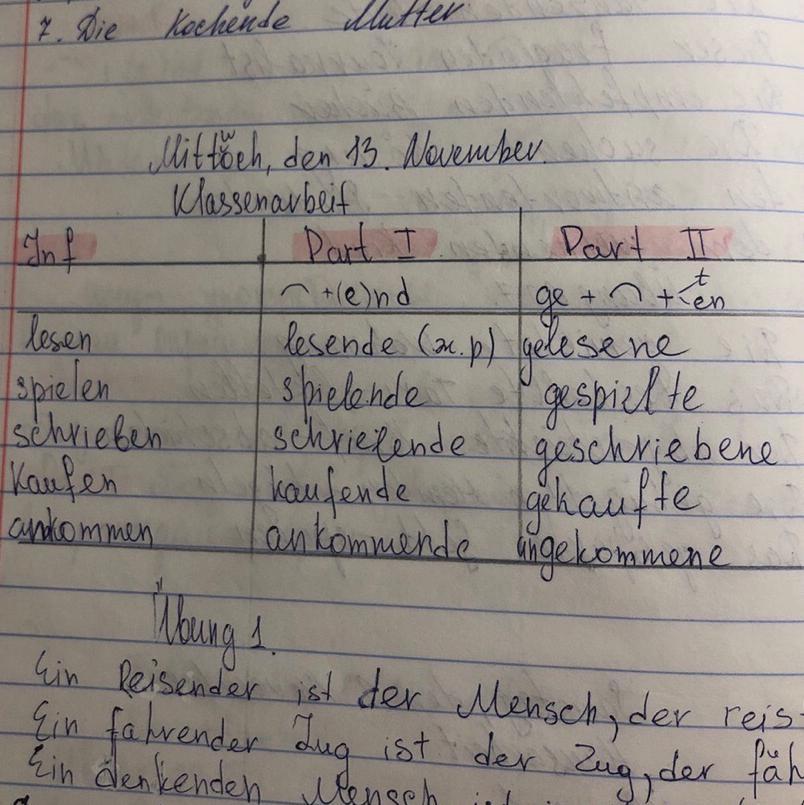 7. Die kochende Mutter
Mittwoch, den 13. November.
Klassenarbeit
Inf Part I Part II
⌒ +(e)nd ge + ⌒ + < t en
lesen lesende (ж.р) gelesene
spielen spielende gespielte
schrieben schriebende geschriebene
kaufen kaufende gekaufte
ankommen ankommende angekommene
Übung 1.
Ein Reisender ist der Mensch, der reis-
Ein fahrender Zug ist der Zug, der fäh
Ein denkenden Mensch ist